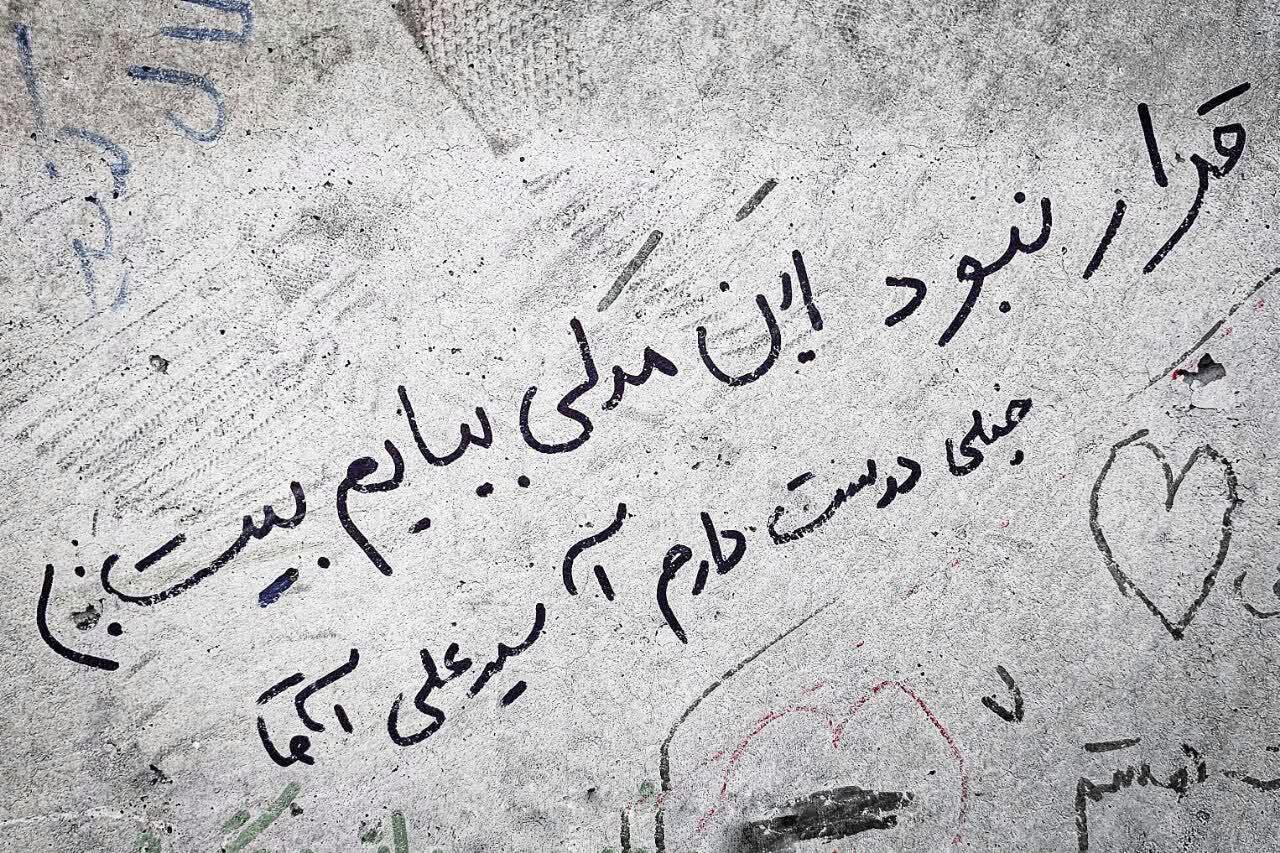 قرار نبود این مدلی بیایم بیت :)
خیلی دوست دارم آ سید علی آقا